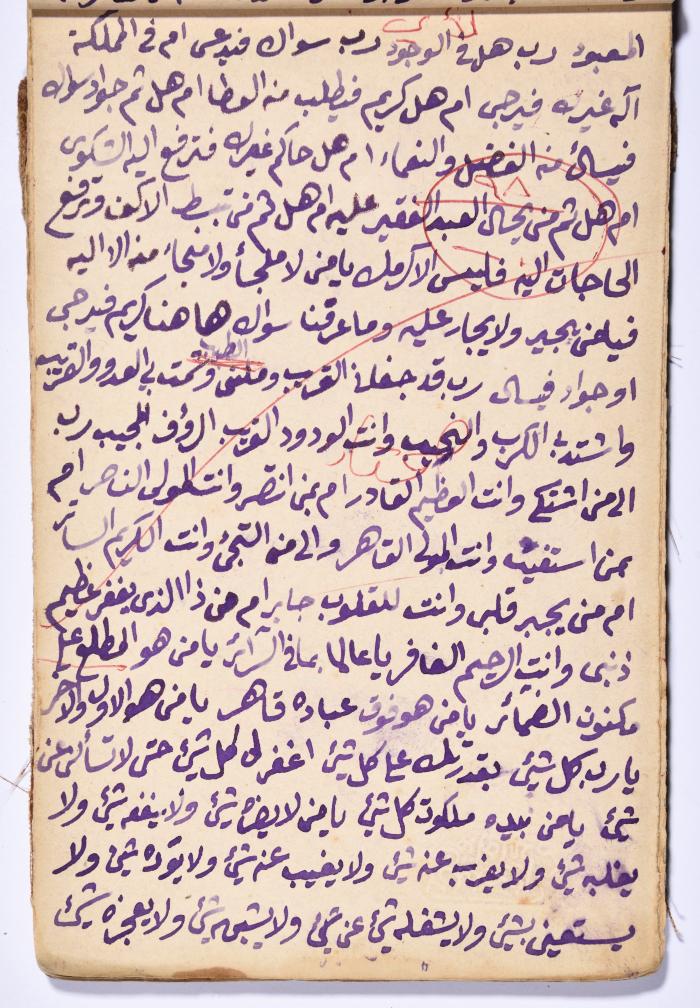 المعبود رب هل في الوجود رب سواك فيدعى ام في المملكة
اله غيرك فيرجى ام هل كريم فيطلب منه العطا ام هل ثم جواد سواك
فيسأل منه الفضل والنعماء ام هل حاكم غيرك فترفع اليه الشكوى
٩٨
ام هل ثم من يحال العبد الفقير عليه ام هل ثم من تبسط الاكف وترفع
الحاجات اليه فليس الا كرمك يا من لا ملجأ ولا منجأ منه الا اليه
فيا من يجير ولا يجار عليه وما عرفنا سواك هاهنا كريم فيرجى
او جواد فيسال رب قد جفاني القريب وملني الطبيب وشمت بي العدو والقريب
واشتد بي الكرب والنحيب وانت الودود القريب الرؤف المجيب رب
الى من اشتكى وانت العظيم القادر ام بمن انتصر وانت المولى الناصر ام
بمن استغيث وانت المولى القاهر والى من التجئ وانت الكريم الساتر
ام من يجبر قلبي وانت للقلوب جابر ام من ذا الذى يغفر عظيم
ذنبى وانت الرحيم الغافر يا عالما بما في السرائر يا من هو المطلع على
مكنون الضمائر يا من هو فوق عباده قاهر يا من هو الاول والاخر
يا رب كل شيئ بقدرتك على كل شيئ اغفر لى كل شيئ حتى لا تسألنى عن
شيئ يا من بيده ملكوت كل شيئ يا من لا يضره شيئ ولا ينفعه شيئ ولا
يغلبه شيئ ولا يعزب عنه شيئ ولا يغيب عنه شيئ ولا يؤده شيئ ولا
يستعين بشيئ ولا يشغله شيئ عن شيئ ولا يشبهه شيئ ولا يعجزه شيئ